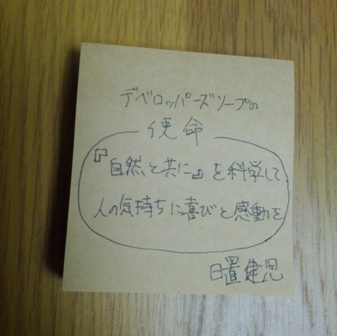 デベロッパーズソープの
使命
『自然と共に』を科学して
人の気持ちに喜びと感動を
日置建児